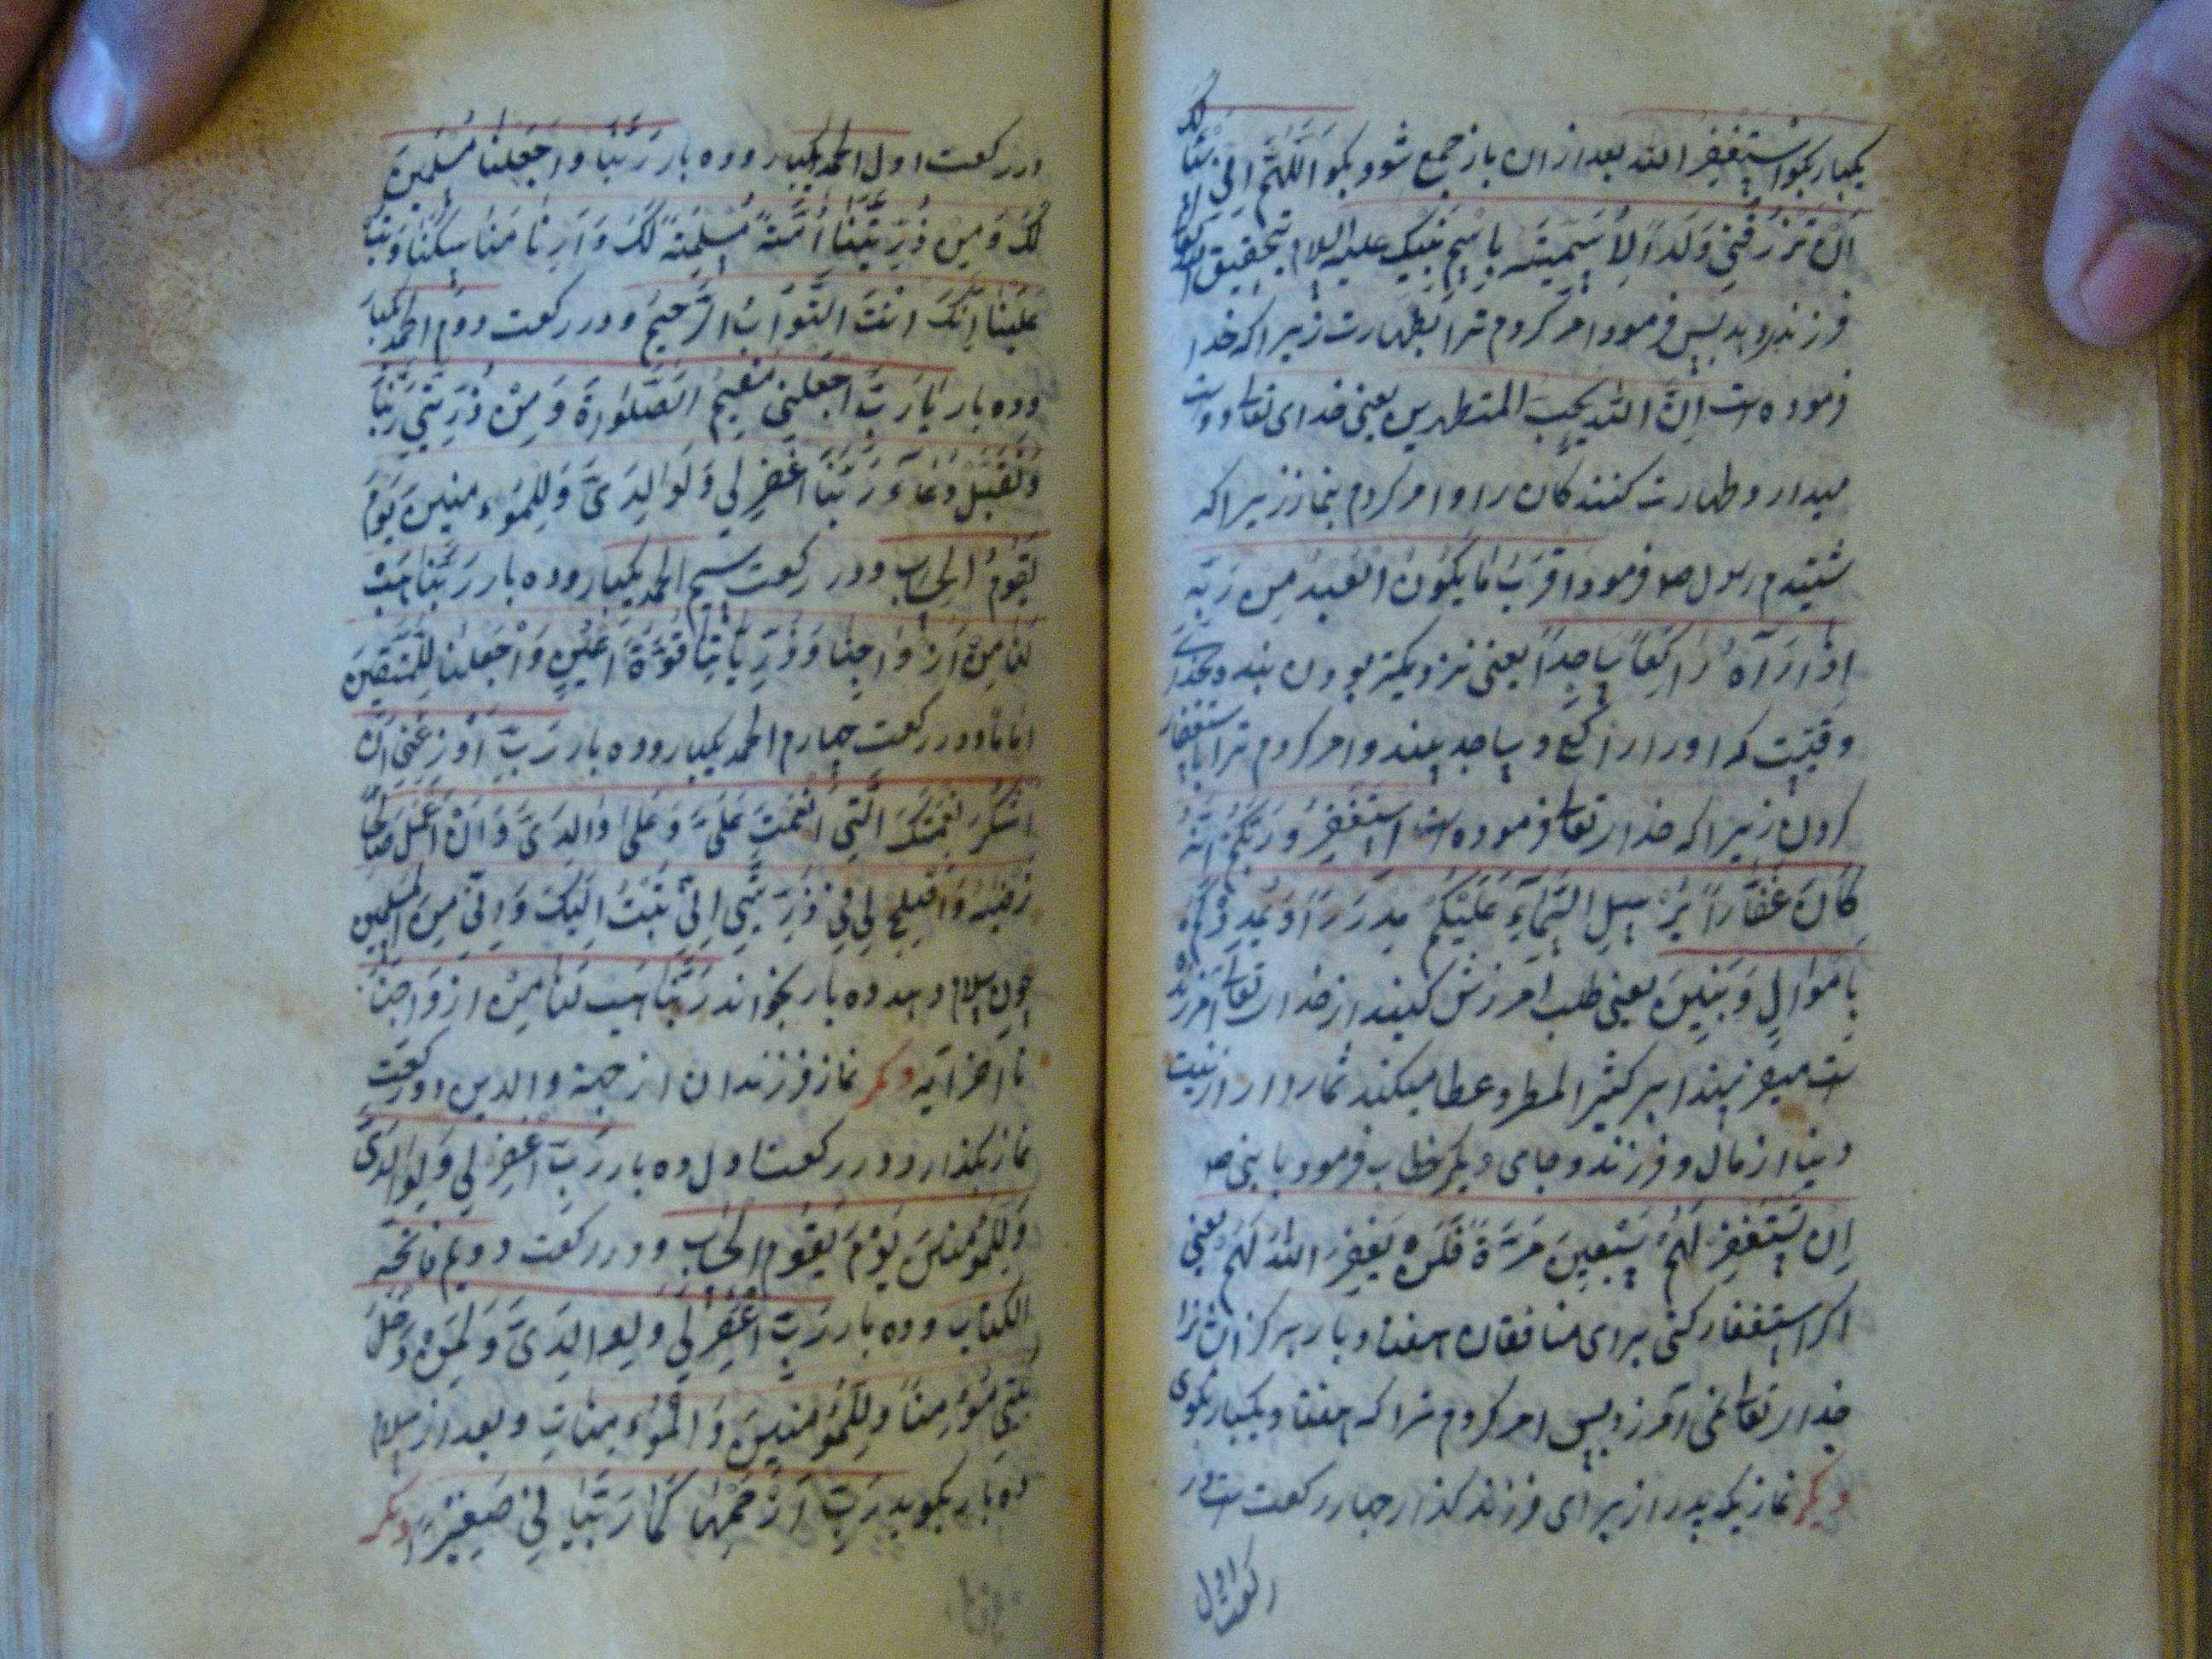 یکبار بکو استغفر الله بعد از ان باز جمع شو و بکو اللهم انی
اَنْ تَرْزُقَنِی وَلَداً لِاُسَمِّیَنَّه بِاسْمِ نَبِیِّک علیه السلام بتحقیق
فرزند بدید پس فرمود امر کردم ترا بطهارت زیرا که خدا
فرموده است اِنَّ الله یُحِبُّ المتطهرین یعنی خدای تعالی دوست
میدارد طهارت کنندکان را و امر کردم بنماز زیرا که
شنیدم رسول ص فرمود اَقْرَبُ مٰا یَکُونُ الْعَبْدُ مِن رَبِّه
اِذٰا رَآهُ رٰاکِعاً سٰاجِداً یعنی نزدیکتر بودن بنده بخدای
وقتیست که او را راکع و ساجد بیند و امر کردم ترا باستغفار
کردن زیرا که خدای تعالی فرموده است اِسْتَغْفِرُوا رَبَّکُمْ اِنَّهُ
کٰانَ غَفّٰاراً یُرْسِلِ السَّمٰاءَ عَلَیْکُمْ مِدْرَاراً وَ یُمْدِدْکُمْ
بِاَمْوٰالٍ وَ بَنِینَ یعنی طلب آمرزش کنید از خدای تعالی آمرزنده
است میفرستد ابر کثیر المطر و عطا میکند شما را از زینت
دنیا از مال و فرزند و جای دیکر خطاب فرمود با نبی ص
اِن تَسْتَغْفِرْ لَهُمْ سَبْعِینَ مَرَّةً فَلَنْ یَغْفِرَ اللهُ لَهُمْ یعنی
اکر استغفار کنی برای منافقان هفتاد بار هرکز ایشانرا
خدای تعالی نمی آمرزد پس امر کردم ترا که هفتاد و یکبار بکوی
دیکر نمازیکه پدر از برای فرزند کذارد چهار رکعت است در
رکعت اول
در رکعت اول الحمد یکبار و ده بار رَبَّنٰا وَ اجْعَلْنٰا مُسْلِمَیْنِ
لَکَ وَ مِنْ ذُرِّیَّتِنٰا اُمَّةً مُسْلِمَةً لَکَ وَ اَرِنٰا مَنٰاسِکَنٰا وَ تُبْ
عَلَیْنٰا اِنَّکَ اَنْتَ التَّوّٰابُ الرَّحِیمُ و در رکعت دوم الحمد یکبار
و ده بار یٰا رَبِّ اجْعَلْنِی مُقِیمَ الصَّلوٰةِ وَ مِنْ ذُرِّیَّتِی رَبَّنٰا
وَ تَقَبَّلْ دُعٰاءِ رَبَّنَا اغْفِرْ لِی وَ لِوٰالِدَیَّ وَ لِلْمُؤْمِنِینَ یَوْمَ
یَقُومُ الْحِسٰابُ و در رکعت سیم الحمد یکبار و ده بار رَبَّنٰا هَبْ
لَنٰا مِنْ اَزْوٰاجِنٰا وَ ذُرِّیّٰاتِنٰا قُرَّةَ اَعْیُنٍ وَ اجْعَلْنٰا لِلْمُتَّقِینَ
اِمٰاماً و در رکعت چهارم الحمد یکبار و ده بار رَبِّ اَوْزِعْنِی اَنْ
اَشْکُرَ نِعْمَتَکَ الَّتِی اَنْعَمْتَ عَلَیَّ وَ عَلیٰ وٰالِدَیَّ وَ اَنْ اَعْمَلَ صٰالِحاً
تَرْضٰیهُ وَ اَصْلِحْ لِی فِی ذُرِّیَّتِی اِنِّی تُبْتُ اِلَیْکَ وَ اِنِّی مِنَ الْمُسْلِمِین
چون سلام دهد ده بار بخواند رَبَّنٰا هَب لَنٰا مِنْ اَزْوٰاجِنٰا
تا آخر آیه دیکر نماز فرزندان از جهة والدین دو رکعت
نماز بکذارد در رکعت اول ده بار رَبِّ اغْفِرْ لِی وَ لِوٰالِدَیَّ
وَ لِلْمُؤْمِنِینَ یَوْمَ یَقُومُ الْحِسٰاب و در رکعت دویم فاتحة
الکتاب و ده بار رَبِّ اغْفِرْ لِی وَ لِوٰالِدَیَّ وَ لِمَنْ دَخَلَ
بَیْتِیَ مُؤْمِناً وَ لِلْمُؤْمِنِینَ وَ الْمُؤْمِنٰاتِ و بعد از سلام
ده بار بکوید رَبِّ ارْحَمْهُمٰا کَمٰا رَبَّیٰانِی صَغِیراً دیکر